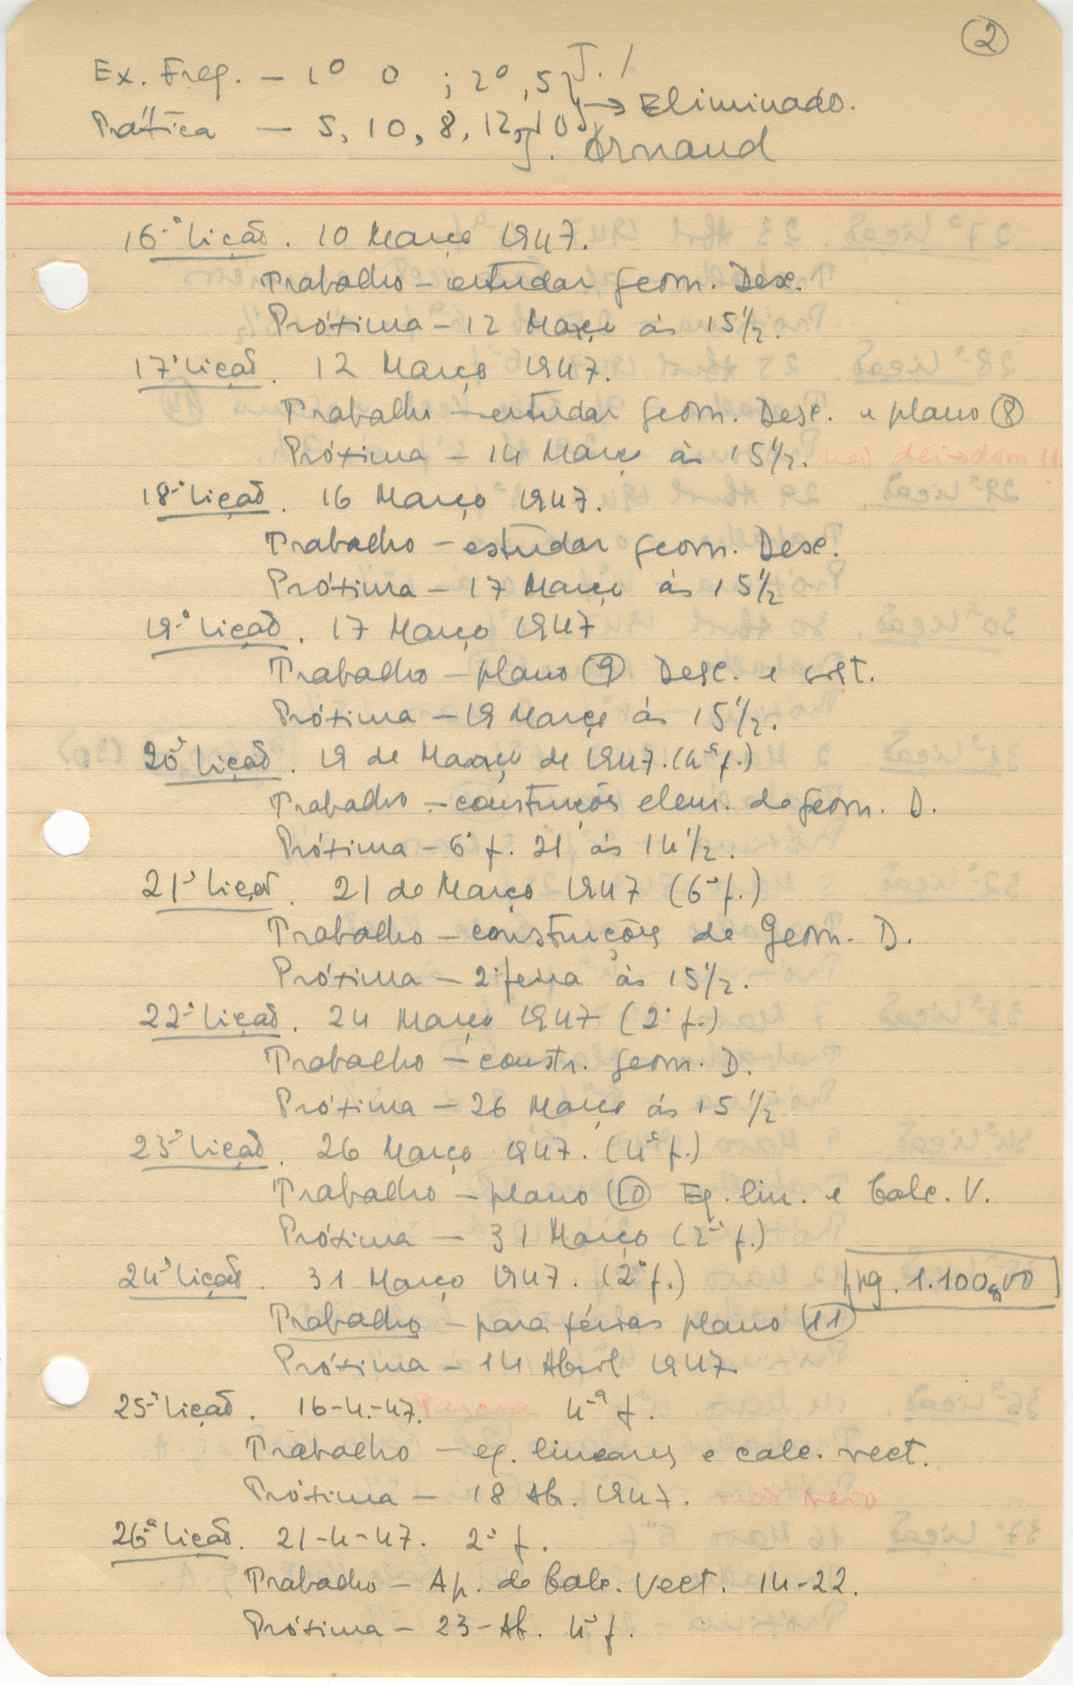 2
Ex. Freq. – 1º 0 ; 2º, 5 } J. /
→ Eliminado.
Prática – 5, 10, 8, 12, 10 } J. Arnaud
16.ª Lição. 10 Março 1947.
Trabalho – estudar Geom. Desc.
Próxima – 12 Março às 15 1/2.
17ª Lição. 12 Março 1947.
Trabalho – estudar Geom. Desc. e plano 8
Próxima – 14 Março às 15 1/2.
18ª Lição. 16 Março 1947.
Trabalho – estudar Geom. Desc.
Próxima – 17 Março às 15 1/2
19ª Lição. 17 Março 1947
Trabalho – plano 9 Desc. e
Próxima – 19 Março às 15 1/2.
20ª Lição. 19 de Março de 1947. (4ª f.)
Trabalho – construções elem. de Geom. D.
Próxima – 6ª f. 21 às 14 1/2.
21ª Lição. 21 de Março 1947 (6ª f.)
Trabalho – construções de Geom. D.
Próxima – 2ª feira às 15 1/2.
22ª Lição. 24 Março 1947 (2ª f.)
Trabalho – constr. Geom. D.
Próxima – 26 Março às 15 1/2
23ª Lição. 26 Março 1947. (4ª f.)
Trabalho – plano 10 Eq. lin. e Calc. V.
Próxima – 31 Março (2ª f.)
24ª Lição. 31 Março 1947. (2ª f.) pg. 1.100,00
Trabalho – para férias plano 11
Próxima – 14 Abril 1947
25ª Lição. 16-4-47. 4ª f.
Trabalho – eq. lineares e calc. vect.
Próxima – 18 Ab. 1947.
26ª Lição. 21-4-47. 2ª f.
Trabalho – Ap. de Calc. Vect. 14-22.
Próxima – 23-Ab. 4ª f.